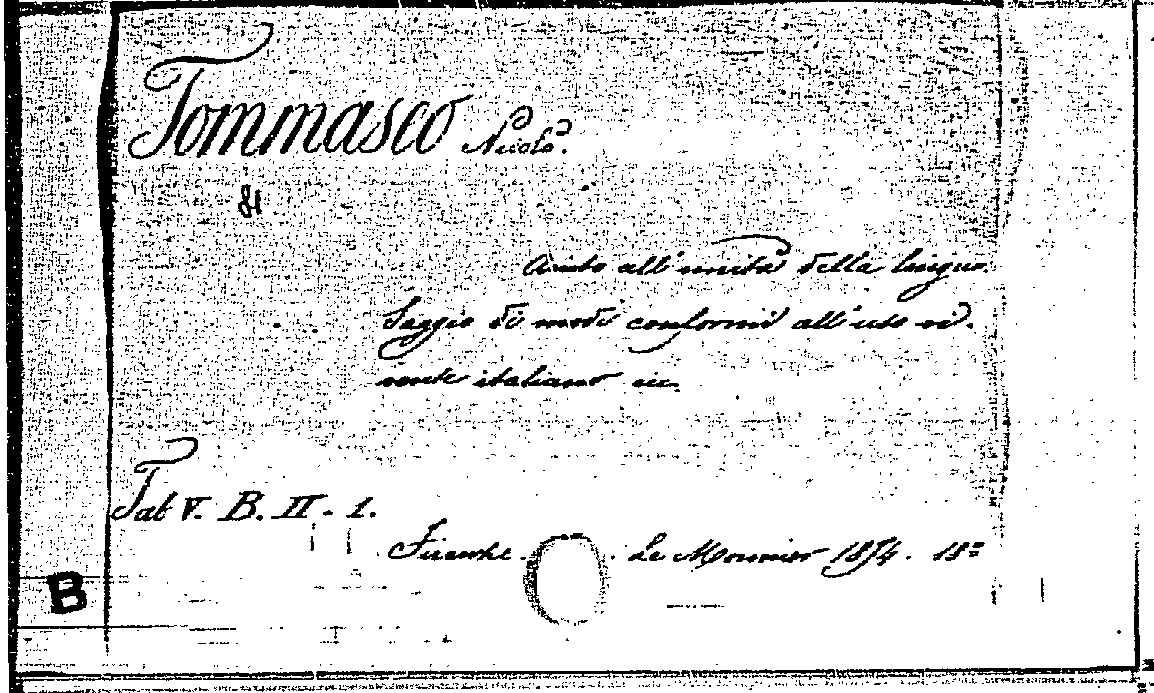 Tommaseo Nicolò.
Aiuto all'unità della lingua.
Saggio di modi conformi all'uso vi-
vente italiano ecc.
Tab V. B. II - 1.
Firenze. Le Monnier 1874. 18º
B